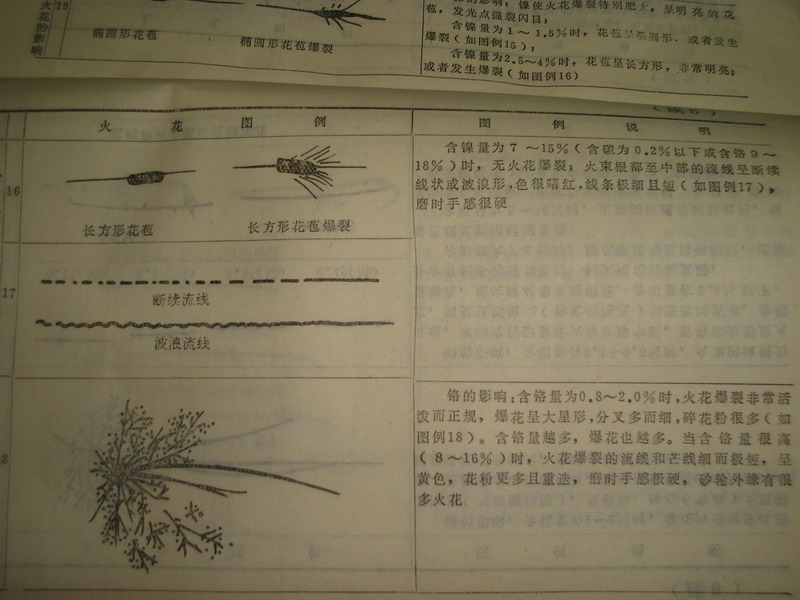 火花的影响
15
椭圆形花苞
椭圆形花苞爆裂
的影响：镍使火花爆裂特别肥大，呈明亮的花
苞，发光点强裂闪目；
含镍量为1～1.5%时，花苞呈椭圆形，或者发生
爆裂（如图例15）；
含镍量为2.5～4%时，花苞呈长方形，非常明亮；
或者发生爆裂（如图例16）
火 花 图 例
图 例 说 明
16
长方形花苞
长方形花苞爆裂
含镍量为7～15%（含碳为0.2%以下或含铬9～
18%）时，无火花爆裂；火束根部至中部的流线呈断续
线状或波浪形，色很暗红，线条极细且短（如图例17），
磨时手感很硬
17
断续流线
波浪流线
8
铬的影响：含铬量为0.8～2.0%时，火花爆裂非常活
泼而正规，爆花呈大星形，分叉多而细，碎花粉很多（如
图例18）。含铬量越多，爆花也越多。当含铬量很高
（8～16%）时，火花爆裂的流线和芒线细而极短，呈
黄色，花粉更多且重迭，磨时手感极硬，砂轮外缘有很
多火花